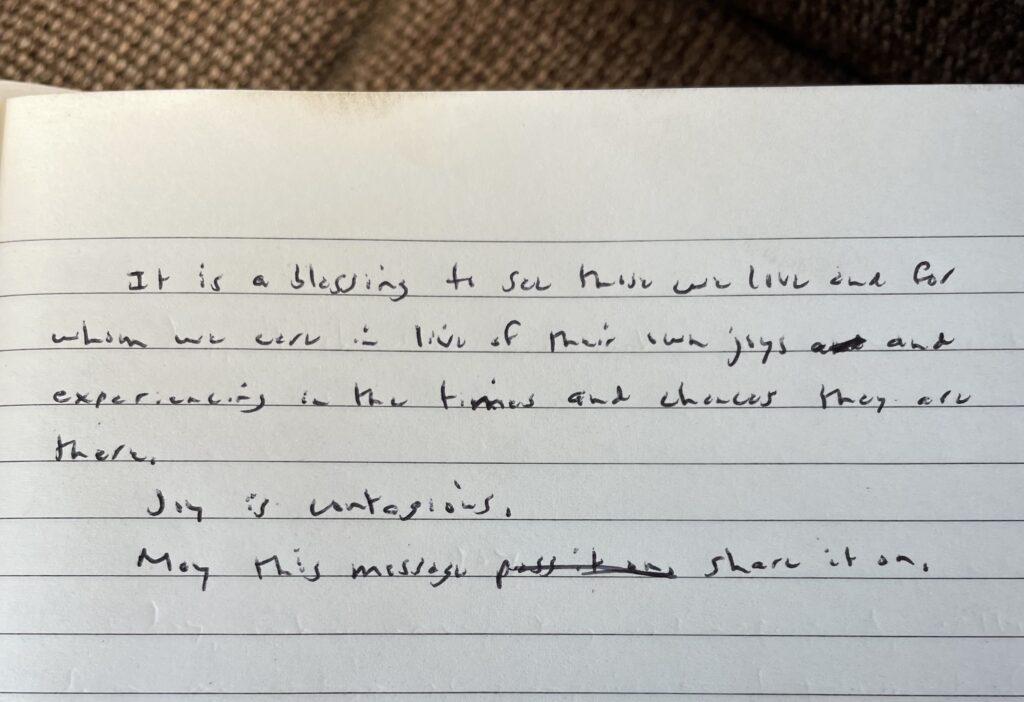 It is a blessing to see those we love and for
whom we care in live of their own joys and
experiencing in the times and chances they are
there.
Joy is contagious.
May this message pass it on, share it on.